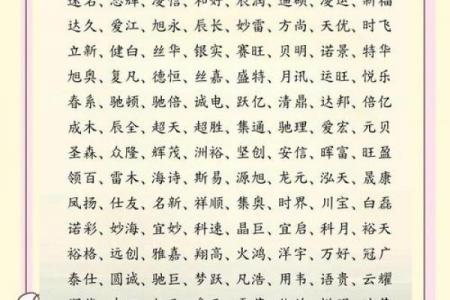 达久、爱江、旭永、辰长、妙雷、方尚、天优、时飞
立新、健白、丝华、银实、赛旺、贝明、诺景、特华
旭奥、复凡、德恒、丝嘉、盛特、月讯、运旺、悦乐
春系、驰顿、驰倍、诚电、跃亿、清鼎、达邦、倍亿
成木、辰全、超天、超胜、集通、驰理、爱宏、元贝
圣森、众隆、辉茂、洲裕、坚创、安信、晖富、旺盈
领百、雷木、海诗、斯易、源旭、龙元、泓天、晟康
凤扬、仕友、名新、祥顺、集奥、时界、川宝、白磊
诺彩、妙海、宜妙、科速、晶巨、宜启、科月、裕天
裕格、远创、雅嘉、翔高、火鸿、洋宇、万好、冠广
泰仕、圆诚、驰巨、梦跃、凡浩、用韦、语贵、云耀